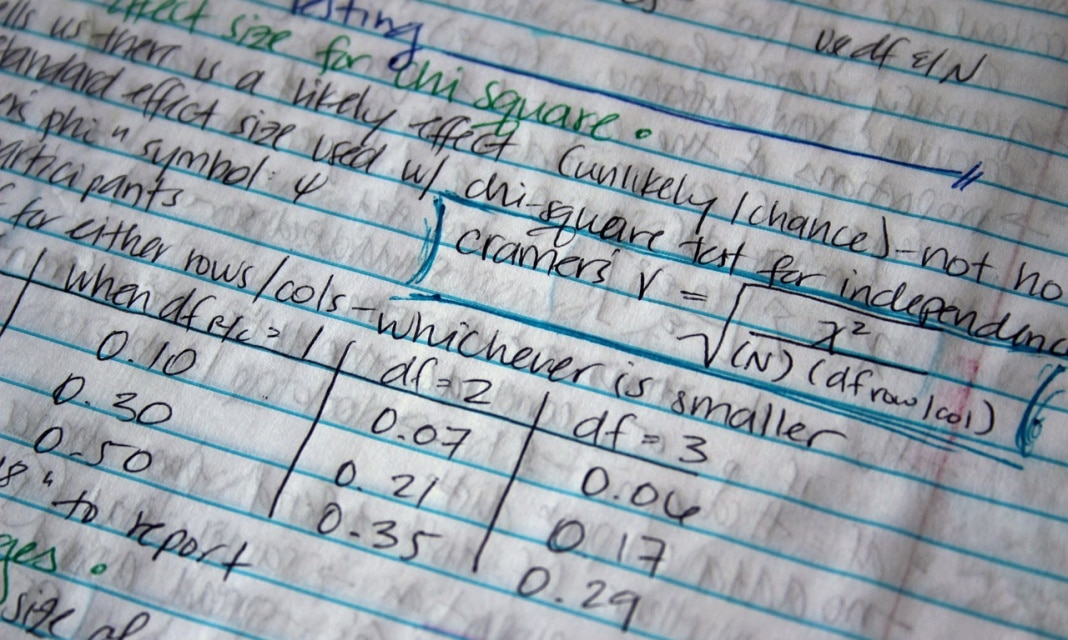 testing
ve df &/N
effect size for chi square.
us there is a likely effect (unlikely/chance)-not no
standard effect size used w/ chi-square test for independence
phi" symbol: φ
participants
cramers V = √ χ² / (N) (df row/col)
for either rows/cols-whichever is smaller
when df R/C = 1 df=2 df=3
0.10 0.07 0.06
0.30 0.21 0.17
0.50 0.35 0.29
" to report
size of